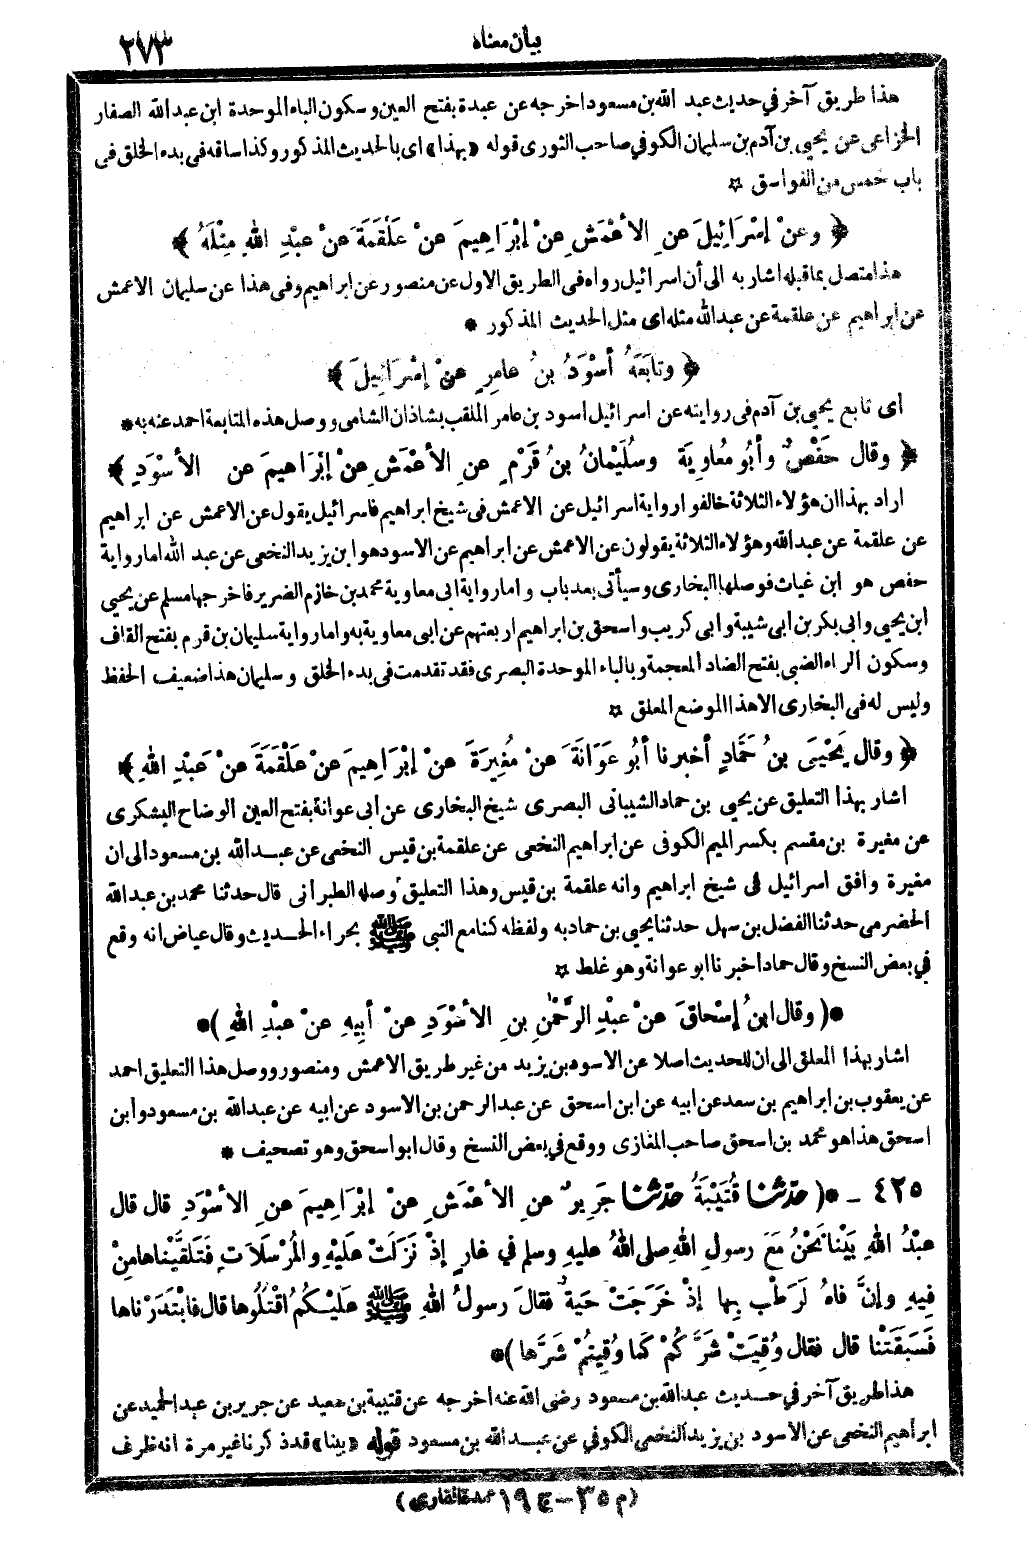 بيان معناه
٢٧٣
هذا طريق آخر في حديث عبد الله بن مسعود اخرجه عن عبدة بفتح العين وسكون الباء الموحدة ابن عبد الله الصفار
الخزاعى عن يحيى بن آدم بن سليمان الكوفي صاحب الثورى قوله «بهذا» اى بالحديث المذكور وكذا ساقه فى بدء الخلق فى
باب خمس من الفواسق ☆
﴿ وعنْ إسْرَائِيلَ عنِ الأعْمَشِ عنْ إبْرَاهِيمَ عنْ عَلْقَمَةَ عنْ عبْدِ اللهِ مِثْلَهُ ﴾
هذا متصل بما قبله اشار به الى أن اسرائيل رواه فى الطريق الاول عن منصور عن ابراهيم وفى هذا عن سليمان الاعمش
عن ابراهيم عن علقمة عن عبد الله مثله اى مثل الحديث المذكور *
﴿ وتابَعَهُ أسْوَدُ بنُ عامِرٍ عنْ إسْرَائِيلَ ﴾
أى تابع يحيى بن آدم فى روايته عن اسرائيل اسود بن عامر الملقب بشاذان الشامى ووصل هذه المتابعة احمد عنه به *
﴿ وقال حَفْصٌ وأبُو مُعاوِيَةَ وسُلَيْمانُ بنُ قَرْمٍ عنِ الأعْمَشِ عنْ إبْرَاهِيمَ عن الأسْوَدِ ﴾
اراد بهذا ان هؤلاء الثلاثة خالفوا رواية اسرائيل عن الاعمش فى شيخ ابراهيم فاسرائيل يقول عن الاعمش عن ابراهيم
عن علقمة عن عبد الله وهؤلاء الثلاثة يقولون عن الاعمش عن ابراهيم عن الاسود هو ابن يزيد النخعى عن عبد الله اما رواية
حفص هو ابن غياث فوصلها البخارى وسيأتى بعد باب واما رواية ابى معاوية محمد بن خازم الضرير فاخرجها مسلم عن يحيى
ابن يحيى وابى بكر بن ابى شيبة وابى كريب واسحق بن ابراهيم اربعتهم عن ابى معاوية به واما رواية سليمان بن قرم بفتح القاف
وسكون الراء الضبى بفتح الضاد المعجمة وبالباء الموحدة البصرى فقد تقدمت فى بدء الخلق وسليمان هذا ضعيف الحفظ
وليس له فى البخارى الا هذا الموضع المعلق ☆
﴿ وقال يَحْيَى بنُ حَمَّادٍ أخبرنا أبُو عَوَانَةَ عنْ مُغِيرَةَ عنْ إبْرَاهِيمَ عنْ عَلْقَمَةَ عنْ عَبْدِ اللهِ ﴾
اشار بهذا التعليق عن يحيى بن حماد الشيبانى البصرى شيخ البخارى عن ابى عوانة بفتح العين الوضاح اليشكرى
عن مغيرة بن مقسم بكسر الميم الكوفى عن ابراهيم النخعى عن علقمة بن قيس النخعى عن عبد الله بن مسعود الى ان
مغيرة وافق اسرائيل فى شيخ ابراهيم وانه علقمة بن قيس وهذا التعليق وصله الطبرانى قال حدثنا محمد بن عبد الله
الحضرمى حدثنا الفضل بن سهل حدثنا يحيى بن حماد به ولفظه كنا مع النبى ﷺ بحراء الحديث وقال عياض انه وقع
في بعض النسخ وقال حماد اخبرنا ابو عوانة وهو غلط ☆
*( وقال ابنُ إسْحاقَ عنْ عبْدِ الرَّحْمٰنِ بنِ الأسْوَدِ عنْ أبِيهِ عنْ عبْدِ اللهِ )*
اشار بهذا المعلق الى ان للحديث اصلا عن الاسود بن يزيد من غير طريق الاعمش ومنصور ووصل هذا التعليق احمد
عن يعقوب بن ابراهيم بن سعد عن ابيه عن ابن اسحق عن عبد الرحمن بن الاسود عن ابيه عن عبد الله بن مسعود وابن
اسحق هذا هو محمد بن اسحق صاحب المغازى ووقع في بعض النسخ وقال ابو اسحق وهو تصحيف *
٤٢٥ - *( حدّثنا قُتَيْبَةُ حدّثنا جَرِيرٌ عنِ الأعْمَشِ عنْ إبْرَاهِيمَ عنِ الأسْوَدِ قال قال
عبْدُ اللهِ بَيْنا نَحْنُ مَعَ رسولِ اللهِ صلى اللهُ عليهِ وسلم في غارٍ إذْ نَزَلَتْ علَيْهِ والمُرْسَلَاتِ فَتَلَقَّيْناها مِنْ
فِيهِ وإنَّ فاهُ لَرَطْبٌ بِها إذْ خَرَجَتْ حَيةٌ فقالَ رسولُ اللهِ ﷺ عَلَيْكُمُ اقْتُلُوها قال فابْتَدَرْناها
فَسَبَقَتْنا قال فقال وُقِيَتْ شَرَّكُمْ كما وُقِيتُمْ شَرَّها )*
هذا طريق آخر في حديث عبد الله بن مسعود رضى الله عنه اخرجه عن قتيبة بن سعيد عن جرير بن عبد الحميد عن
ابراهيم النخعى عن الاسود بن يزيد النخعى الكوفي عن عبد الله بن مسعود قوله «بينا» قد ذكرنا غير مرة انه ظرف
(م ٣٥ - ج ١٩ عمدة القارى)